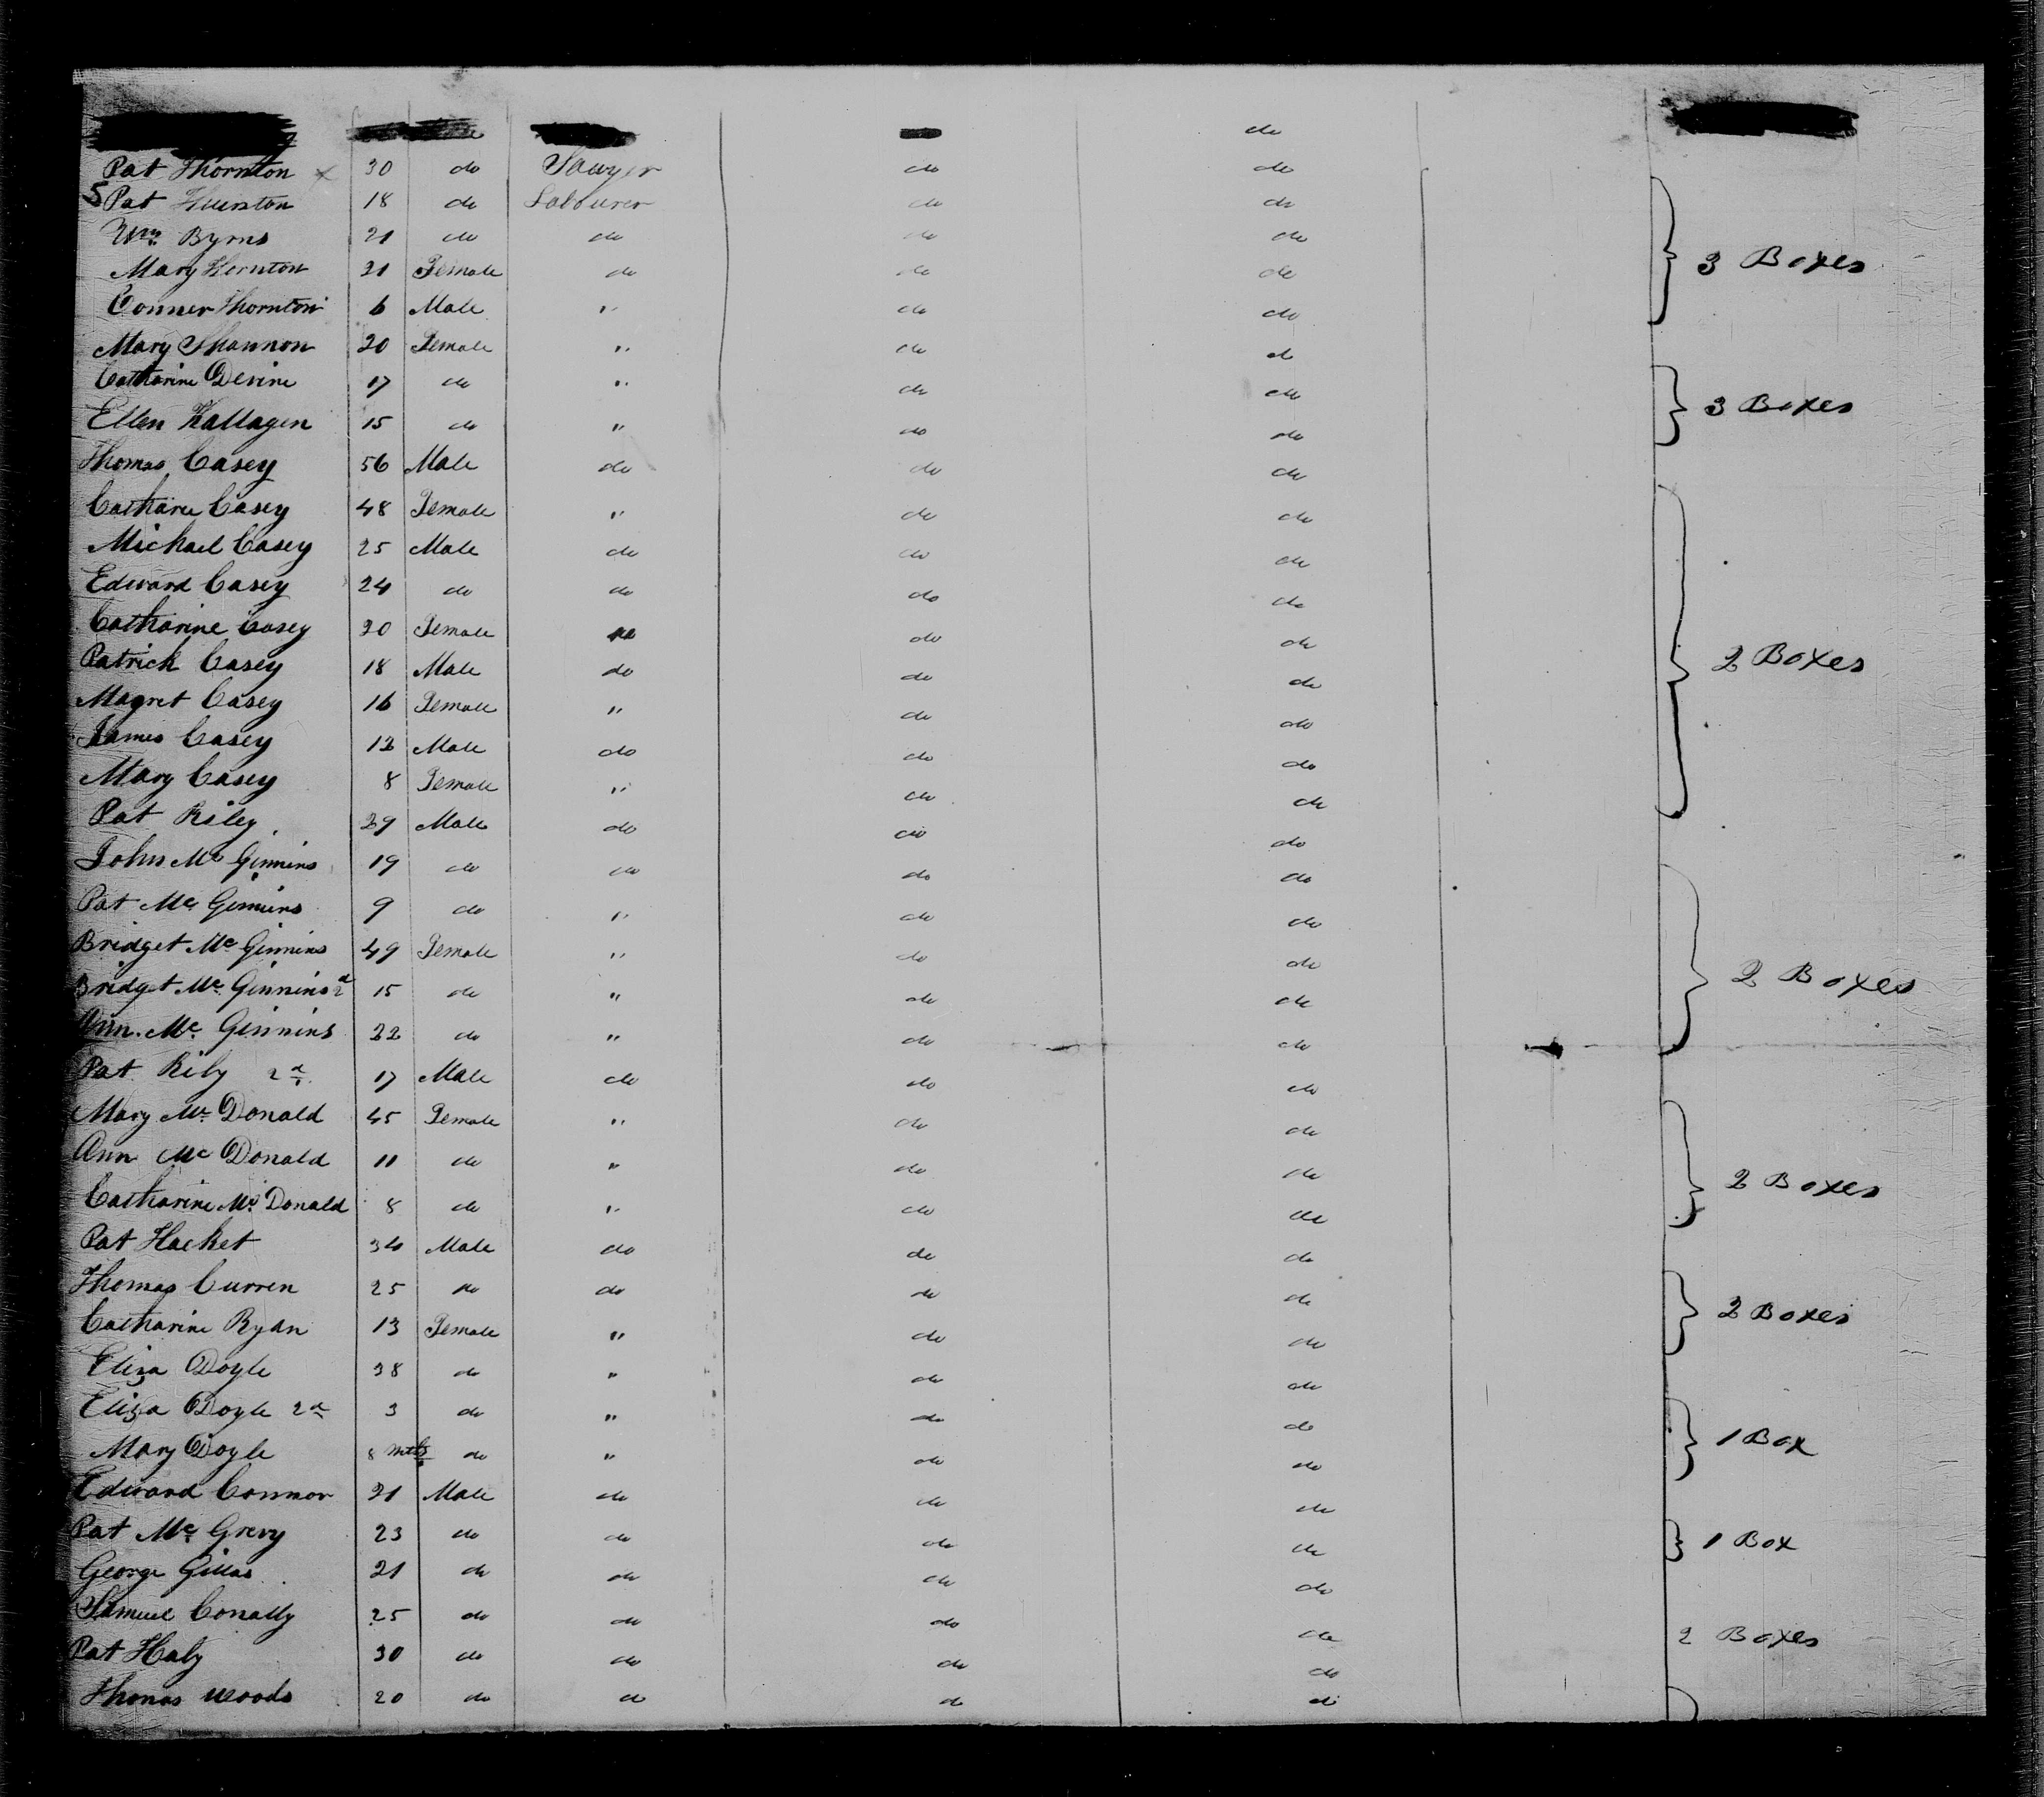 do
Pat Thornton x 30 do Sawyer do do
5 Pat Thornton 18 do Labourer do do
Wm Byrns 21 do do do do
Mary Thornton 21 Female do do do 3 Boxes
Conner Thornton 6 Male " do do
Mary Shannon 20 Female " do do
Catharine Devine 17 do " do do
Ellen 15 do " do do 3 Boxes
Thomas Casey 56 Male do do do
Catharine Casey 48 Female " do do
Michael Casey 25 Male do do do
Edward Casey 24 do do do do
Catharine Casey 20 Female do do
Patrick Casey 18 Male do do do 2 Boxes
Magret Casey 16 Female " do do
James Casey 12 Male do do do
Mary Casey 8 Female " do do
Pat Riley 29 Male do do do
John Mc Ginnins 19 do do do do
Pat Mc Ginnins 9 do " do do
Bridget Mc Ginnins 49 Female " do do
Bridget Mc Ginnins 2d 15 do " do do 2 Boxes
Ann Mc Ginnins 22 do " do do
Pat Rily 2d 17 Male do do do
Mary Mc Donald 45 Female " do do
Ann Mc Donald 11 do " do do
Catharine Mc Donald 8 do " do do 2 Boxes
Pat Hacket 34 Male do do do
Thomas Curren 25 do do do do
Catharine Ryan 13 Female " do do 2 Boxes
Eliza Doyle 38 do " do do
Eliza Doyle 2d 3 do " do do
Mary Doyle 8 mths do " do do 1 Box
Edward Connor 21 Male do do do
Pat Mc Grevy 23 do do do do 1 Box
George Gillas 21 do do do do
Samuel Conally 25 do do do do 2 Boxes
Pat Haly 30 do do do do
Thomas Woods 20 do do do do